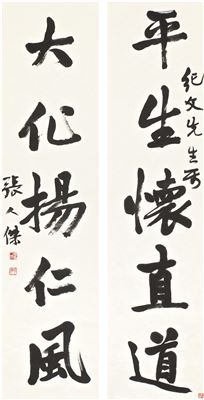 平生懷直道
紀文先生正
大化揚仁風
張人傑